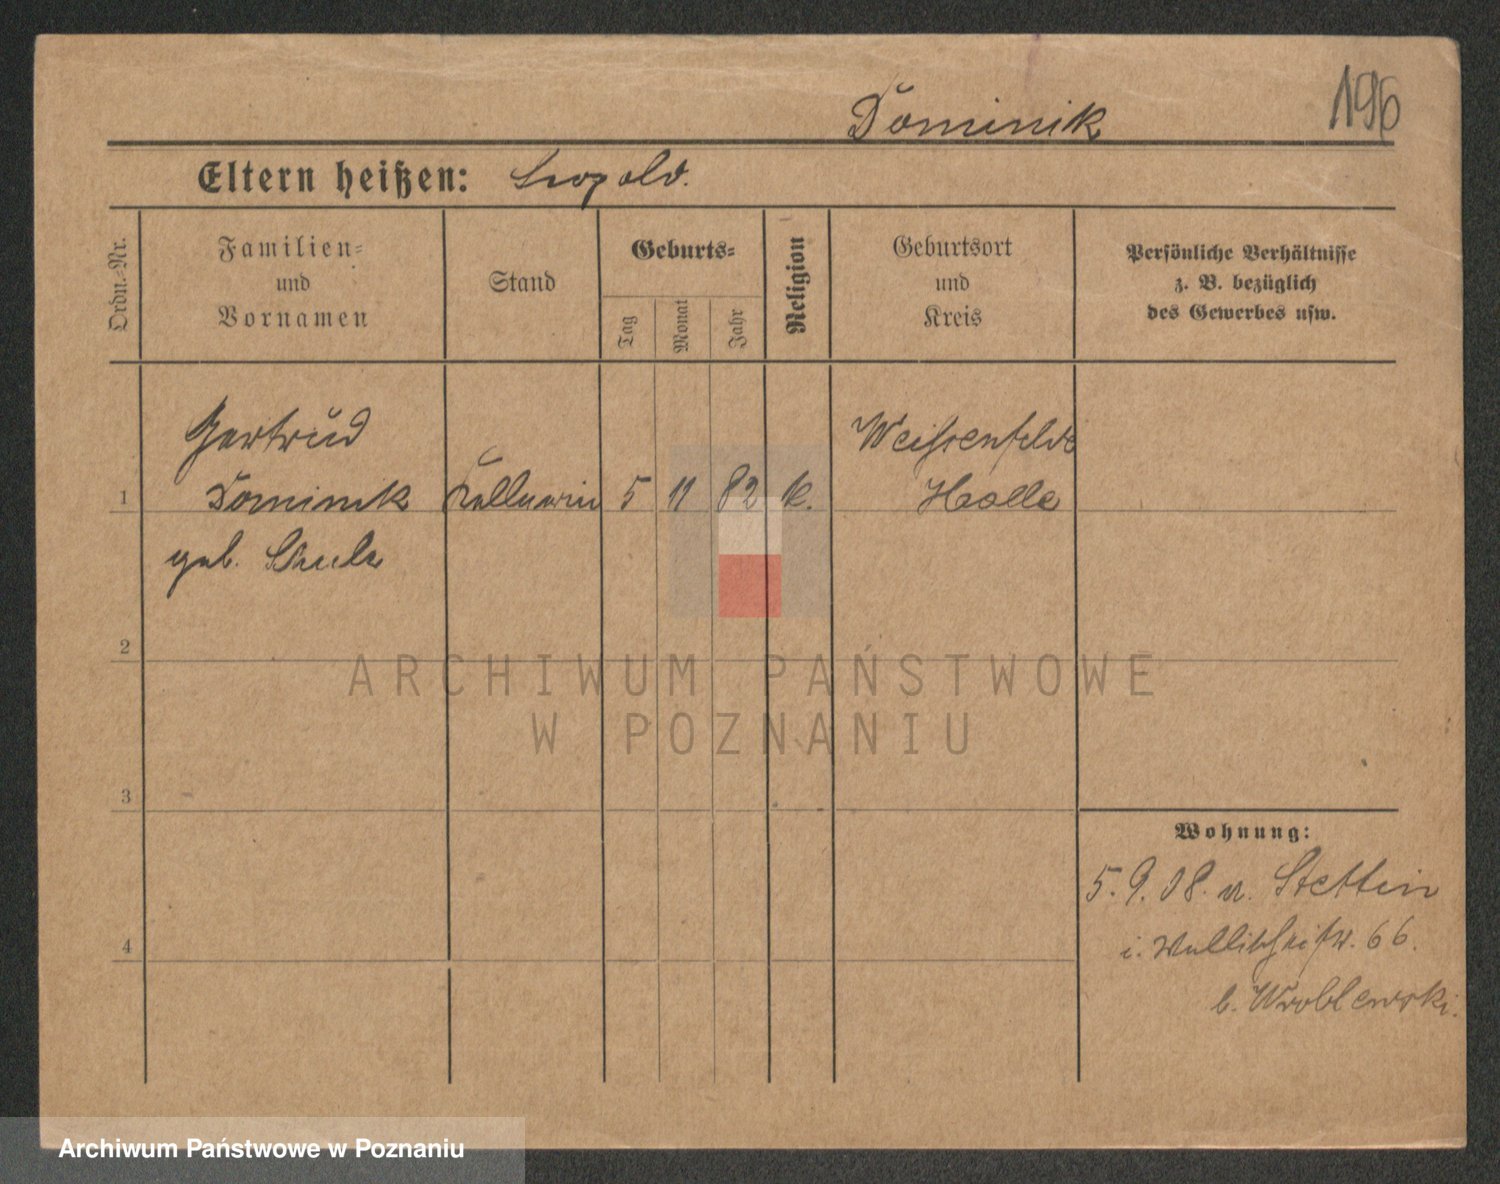 Dominik
196
Eltern heißen: Leopold.
Ordn.-Nr.
Familien-
und
Vornamen
Stand
Geburts-
Tag
Monat
Jahr
Religion
Geburtsort
und
Kreis
Persönliche Verhältnisse
z. B. bezüglich
des Gewerbes usw.
Gertrud Weissenfels
1 Dominik Kellnerin 5 11 82 k. Halle
geb.
2
ARCHIWUM PAŃSTWOWE
W POZNANIU
3
Wohnung:
5.9.08. a. Stettin
i. 66.
b. Wroblewski.
4
Archiwum Państwowe w Poznaniu